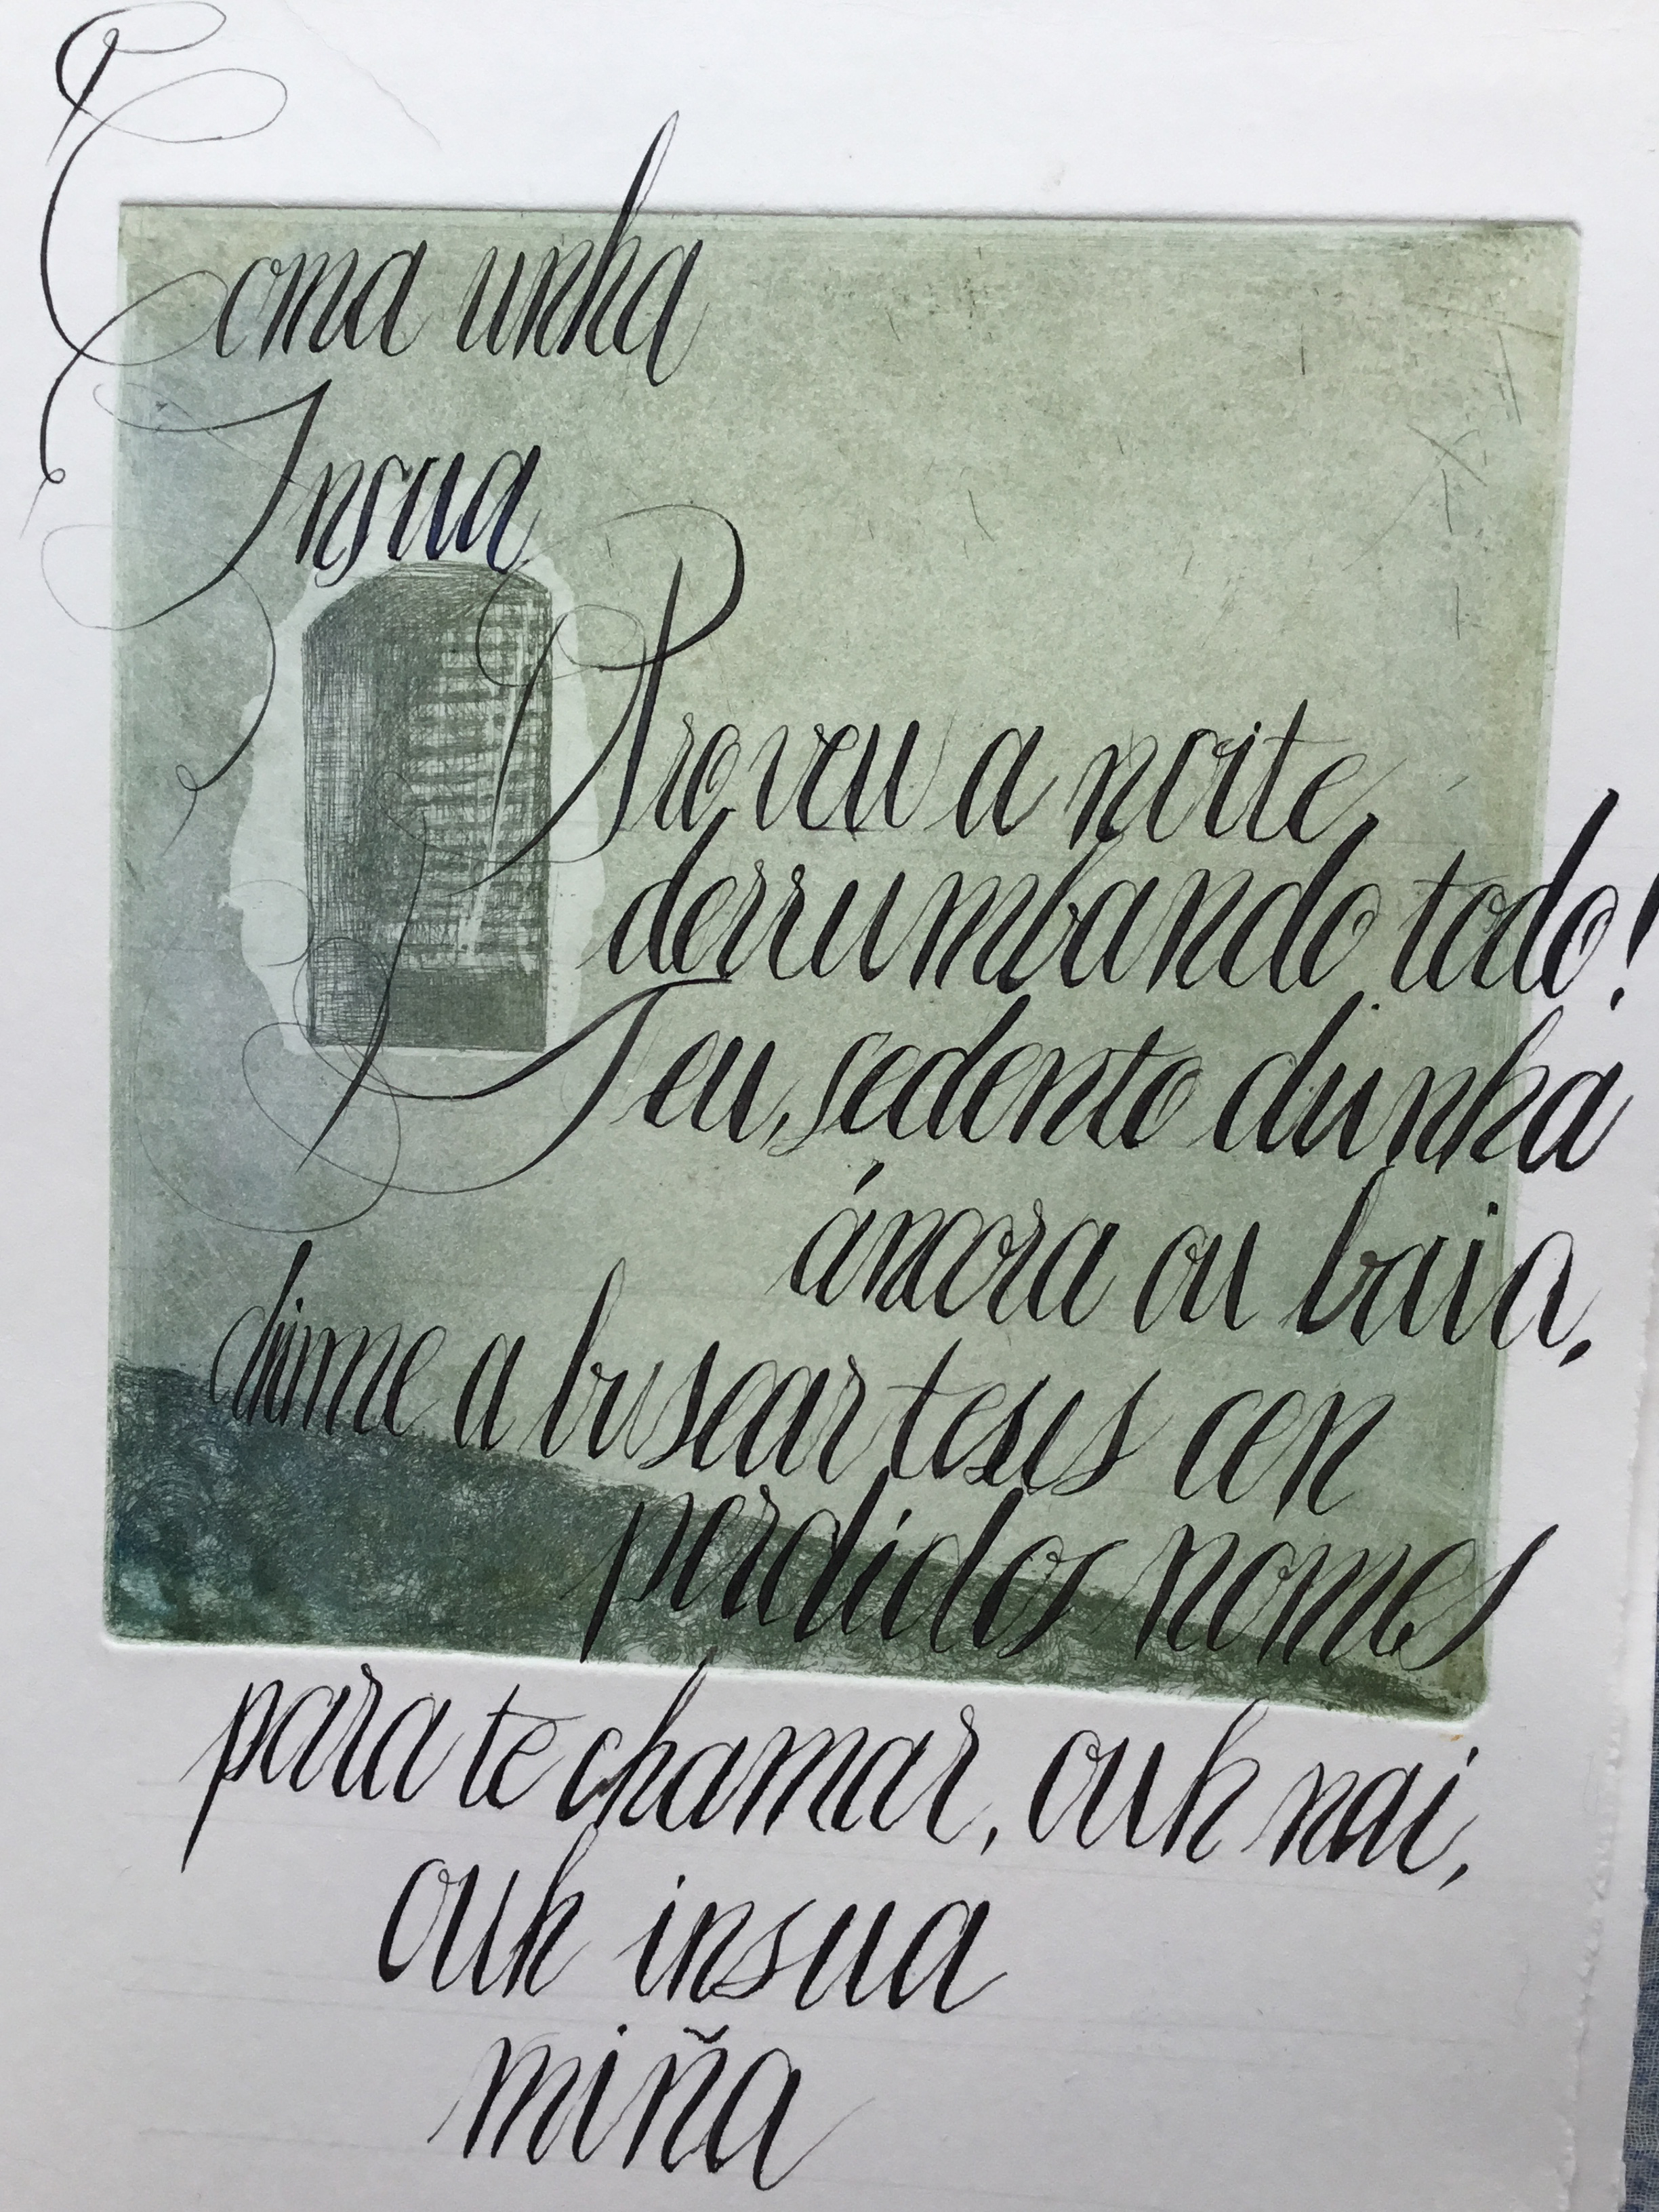 Coma unha
Insua
Pro veu a noite
derrumbando todo!
I eu, sedento dunha
áncora ou baia,
dinme a buscar teus cen
perdidos nomes
para te chamar, ouh nai,
ouh insua
miña